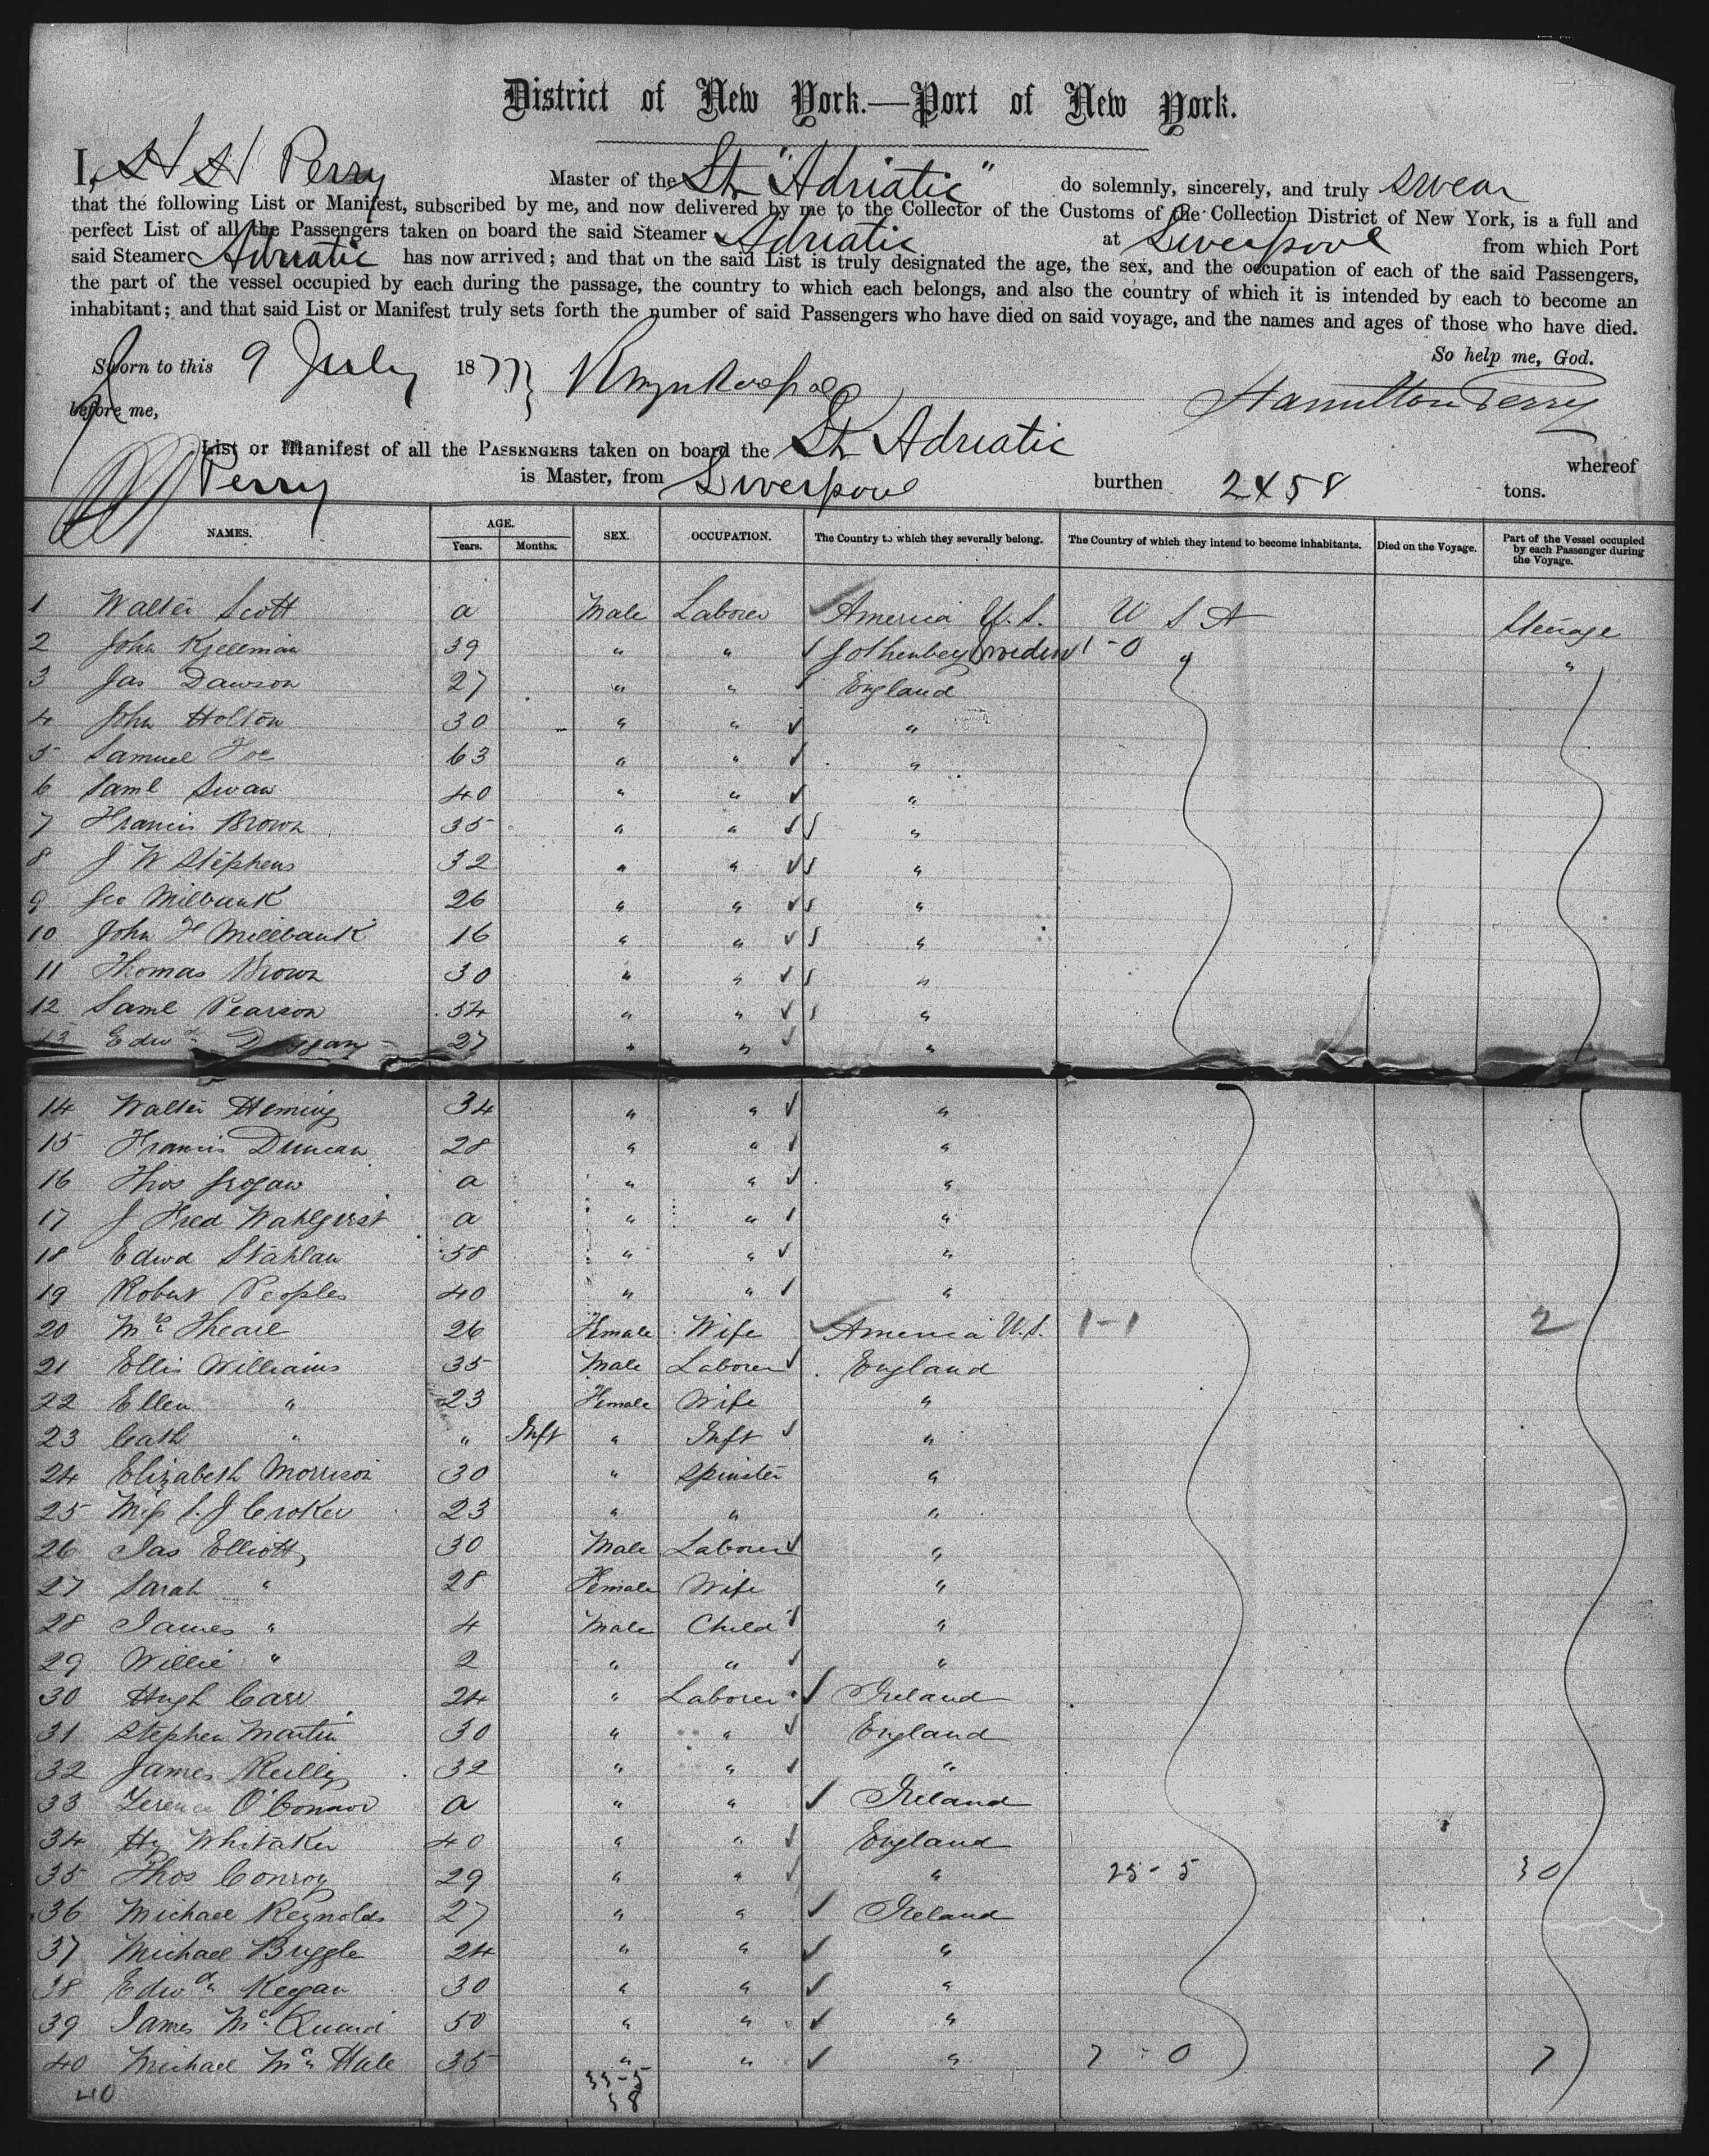 District of New York.—Port of New York.
I, H H Perry Master of the Str "Adriatic" do solemnly, sincerely, and truly swear
that the following List or Manifest, subscribed by me, and now delivered by me to the Collector of the Customs of the Collection District of New York, is a full and
perfect List of all the Passengers taken on board the said Steamer Adriatic at Liverpool from which Port
said Steamer Adriatic has now arrived; and that on the said List is truly designated the age, the sex, and the occupation of each of the said Passengers,
the part of the vessel occupied by each during the passage, the country to which each belongs, and also the country of which it is intended by each to become an
inhabitant; and that said List or Manifest truly sets forth the number of said Passengers who have died on said voyage, and the names and ages of those who have died.
So help me, God.
Sworn to this 9 July 1877
Hamilton Perry
before me,
List or Manifest of all the PASSENGERS taken on board the Str Adriatic whereof
Perry is Master, from Liverpool burthen 2458 tons.
NAMES. AGE. SEX. OCCUPATION. The Country to which they severally belong. The Country of which they intend to become inhabitants. Died on the Voyage. Part of the Vessel occupied by each Passenger during the Voyage.
Years. Months.
1 Walter Scott a Male Laborer America U.S. U S A Steerage
2 John Kjellman 39 " " Gothenberg Sweden 1-0 " "
3 Jas Dawson 27 " " England
4 John Holton 30 " " "
5 Samuel 63 " " "
6 Saml Swan 40 " " "
7 Francis Brown 35 " " "
8 J W Stephens 32 " " "
9 Geo Milbank 26 " " "
10 John F Millbank 16 " " "
11 Thomas Brown 30 " " "
12 Saml Pearson 34 " " "
13 Edwd Duggan 27 " " "
14 Walter Heming 34 " " "
15 Francis Duncan 28 " " "
16 Thos Grogan a " " "
17 J Fred Wahlqvist a " " "
18 Edwd Stahlan 58 " " "
19 Robert Peoples 40 " " "
20 Mrs Thearl 26 Female Wife America U.S. 1-1 2
21 Ellis Williams 35 Male Laborer England
22 Ellen " 23 Female Wife "
23 Cath " " Inft " Inft "
24 Elizabeth Morrison 30 " Spinster "
25 Miss S. J Croker 23 " " "
26 Jas Elliott 30 Male Laborer "
27 Sarah " 28 Female Wife "
28 James " 4 Male Child "
29 Willie " 2 " " "
30 Hugh Carr 24 " Laborer Ireland
31 Stephen Martin 30 " " England
32 James Reilly 32 " " "
33 Terence O'Connor a " " Ireland
34 Hy Whitaker 40 " " England
35 Thos Conroy 29 " " " 25-5 30
36 Michael Reynolds 27 " " Ireland
37 Michael Buggle 24 " " "
38 Edwd Kegan 30 " " "
39 James McQuaid 50 " " "
40 Michael McHale 35 " " " 7-0 7
40 33-5
38